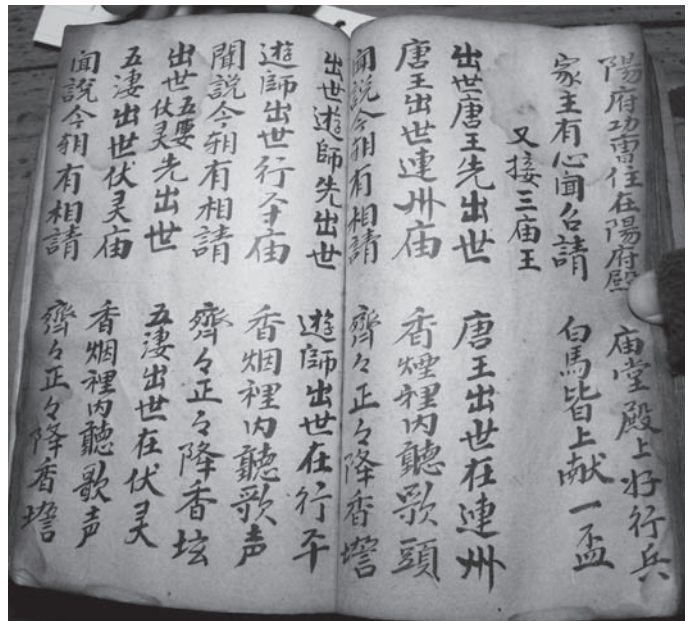 陽府功曹住在陽府殿 庙堂殿上好行兵
家主有心闻召請 白馬皆上献一盃
又接三庙王
出世唐王先出世 唐王出世在連州
唐王出世連州庙 香煙裡内聽歌頭
闻説今朝有相請 齊々正々降香壇
出世遊師先出世 遊師出世在行平
遊師出世行平庙 香烟裡内聽歌声
聞説今朝有相請 齊々正々降香坛
出世五婆伏灵先出世 五淒出世在伏灵
五淒出世伏灵庙 香烟裡内聽歌声
闻説今朝有相請 齊々正々降香壇